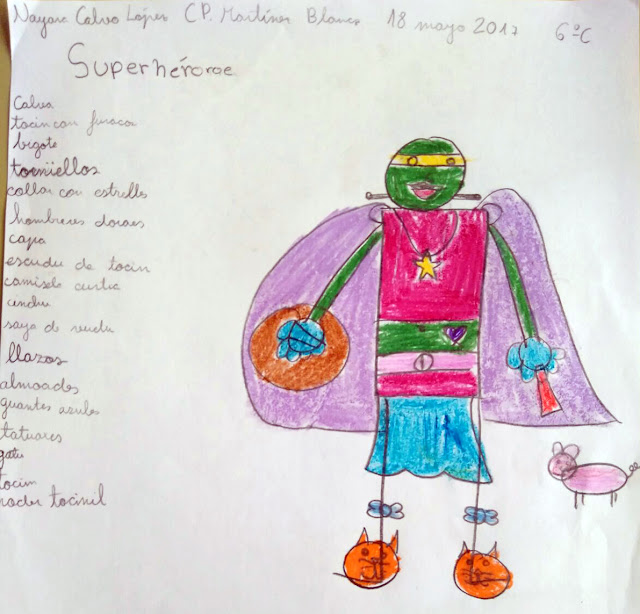 Nayara Calvo López CP. Martínez Blanco 18 mayo 2017 6ºC
Superhéroroe
Calva
tocin con furacos
bigote
torniellos
collar con estrelles
hombreres doraes
capa
escudu de tocin
camiseta curtia
saya de
llazos
almoades
guantes azules
tatuares
gatu
tocin
poder tocinil